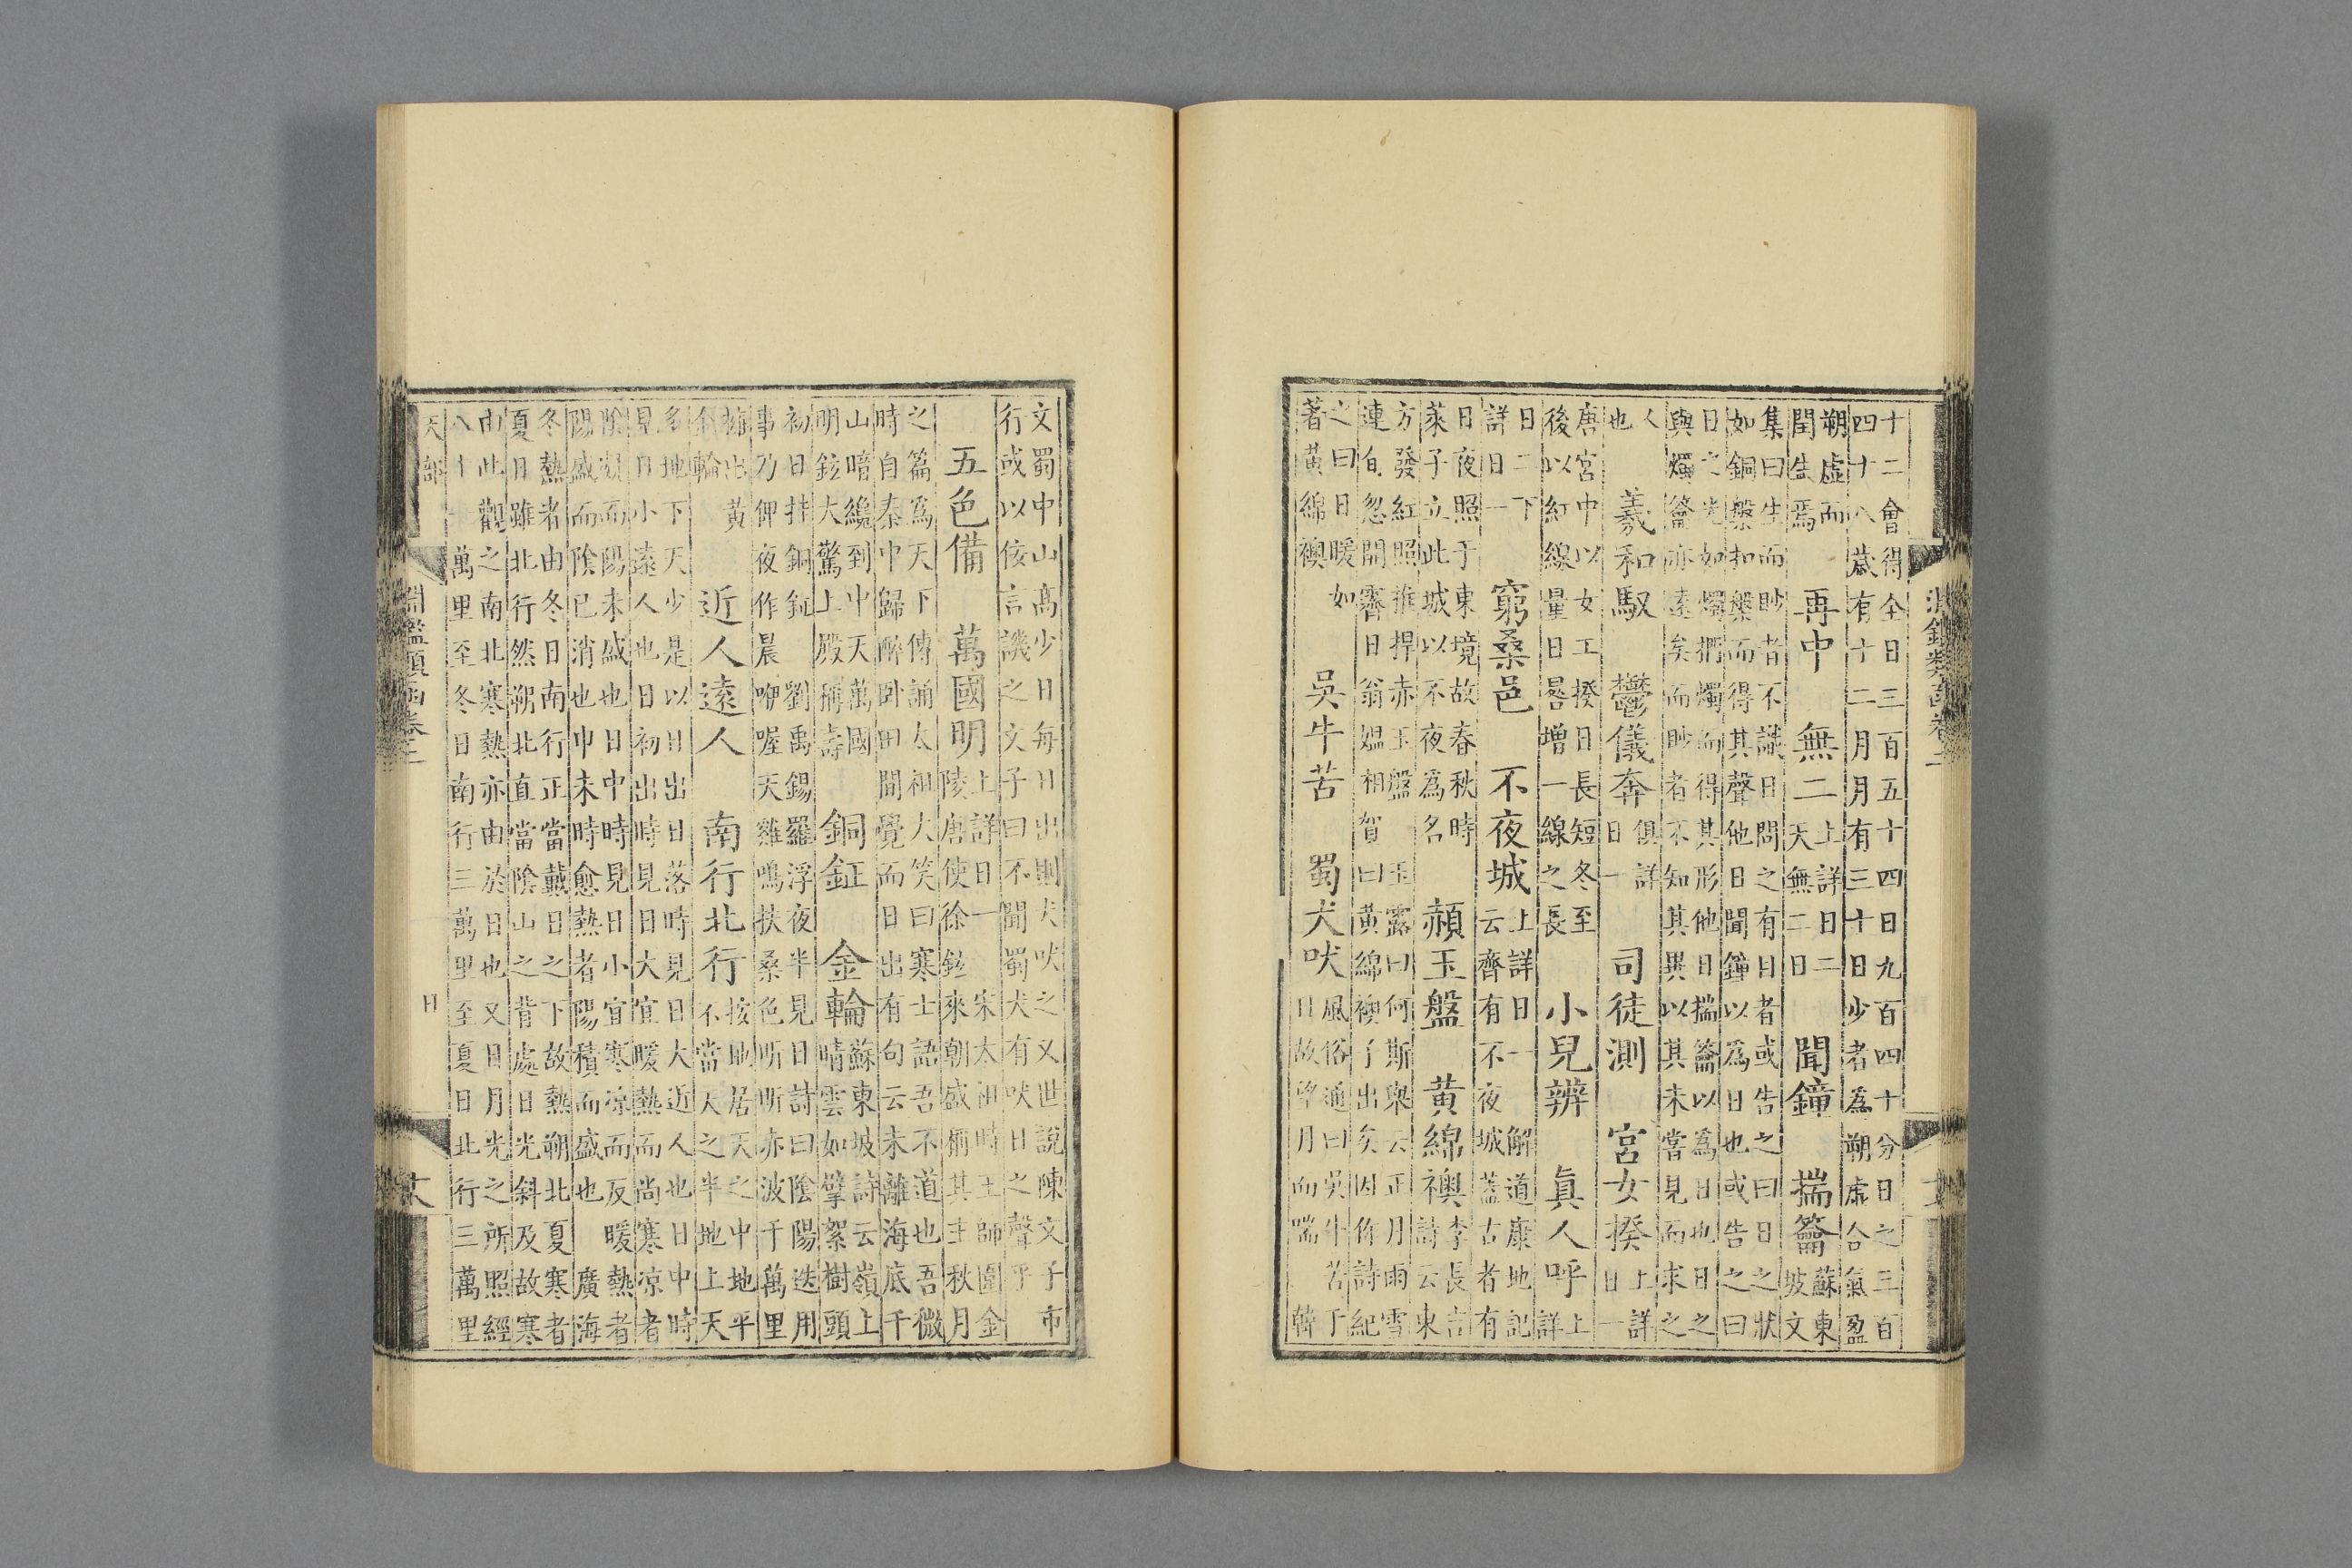 十二會得全日三百五十四日九百四十分日之三百
四十八歲有十二月月有三十日少者為朔虛合氣盈
朔虛而
閏生焉
再中
無二
上詳日二
天無二日
聞鐘
揣籥
蘇東
坡文
集曰生而眇者不識日問之有日者或告之曰日之狀
如銅槃扣槃而得其聲他日聞鐘以為日也或告之曰
日之光如燭捫燭而得其形他日揣籥以為日也日之
與燭籥亦遠矣而眇者不知其異以其未嘗見而求之
人
也
羲和馭
鬱儀奔
俱詳
日一
司徒測
宮女揆
上詳
日一
唐宮中以女工揆日長短冬至
後以紅線量日晷增一線之長
小兒辨
真人呼
上
詳
日二下
詳日一
窮桑邑
不夜城
上詳日一 解道康地記
云齊有不夜城蓋古者有
日夜照于東境故春秋時
萊子立此城以不夜為名
赬玉盤
黃綿襖
李長吉
詩云東
方發紅照推捍赤玉盤 玉露曰何斯舉云正月雨雪
連旬忽開霽日翁媼相賀曰黃綿襖子出矣因作詩紀
之曰日暖如
著黃綿襖
吳牛苦
蜀犬吠
風俗通曰吳牛苦于
日故望月而喘 韓
文蜀中山高少日每日出則犬吠之又世說陳文子市
行或以侫言譏之文子曰不聞蜀犬有吠日之聲乎
五色備
萬國明
上詳日一 宋太祖時王師圍金
陵唐使徐鉉來朝盛稱其主秋月
之篇為天下傳誦太祖大笑曰寒士語吾不道也吾微
時自秦中歸醉臥田間覺而日出有句云未離海底千
山暗纔到中天萬國
明鉉大驚上殿稱壽
銅鉦
金輪
蘇東坡詩云嶺上
晴雲如擘絮樹頭
初日挂銅鉦 劉禹錫羅浮夜半見日詩曰陰陽迭用
事乃俾夜作晨咿喔天雞鳴扶桑色昕昕赤波千萬里
擁出黃
金輪
近人遠人
南行北行
按地居天之中地平
不當天之半地上天
多地下天少是以日出日落時見日大近人也日中時
見日小遠人也日初出時見日大宜暖熱而尚寒涼者
陰凝而陽未盛也日中時見日小宜寒涼而反暖熱者
陽盛而陰已消也巾未時愈熱者陽積而盛也 廣海
冬熱者由冬日南行正當戴日之下故熱朔北夏寒者
夏日雖北行然朔北直當陰山之背處日光斜及故寒
由此觀之南北寒熱亦由於日也又日月光之所照經
八十一萬里至冬日南行三萬里至夏日北行三萬里
天部
淵鑑類函卷二
日